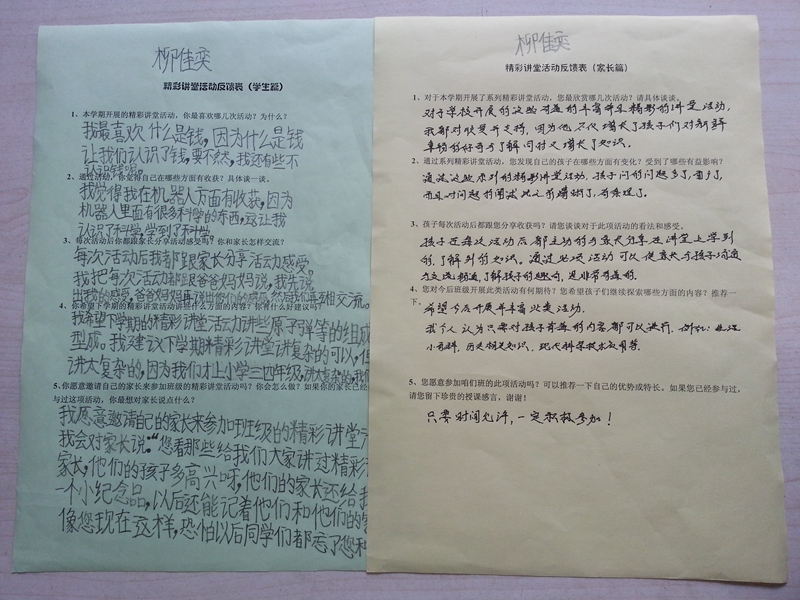 柳佳奕
精彩讲堂活动反馈表（学生篇）
1、本学期开展的精彩讲堂活动，你最喜欢哪几次活动？为什么？
我最喜欢什么是钱，因为什么是钱
让我们认识了钱，要不然，我还有些不
认识钱呢。
2、通过活动，你觉得自己在哪些方面有收获？具体谈一谈。
我觉得我在机器人方面有收获，因为
机器人里面有很多科学的东西，这让我
认识了科学，学到了科学。
3、每次活动后你都跟家长分享活动感受吗？你和家长怎样交流？
每次活动后我都跟家长分享活动感受。
我把每次活动都跟爸爸妈妈说，我先说
出我的感受，爸爸妈妈再说出他们的感受，然后我们再互相交流。
4、你希望下学期的精彩讲堂活动讲些什么方面的内容？你有什么好建议吗？
我希望下学期的精彩讲堂活动讲些原子弹等的组成
型成。我建议下学期精彩讲堂讲复杂的可以，但
讲太复杂的，因为我们才上小学三四年级，讲太复杂的，我们
5、你愿意邀请自己的家长来参加班级的精彩讲堂活动吗？你会怎么做？如果你的家长已经
与过这项活动，你最想对家长说点什么？
我愿意邀请自己的家长来参加班级的精彩讲堂
我会对家长说：“您看那些给我们大家讲过精彩
家长，他们的孩子多高兴呀，他们的家长还给我
一个小纪念品，以后还能记着他们和他们的
像您现在这样，恐怕以后同学们都忘了您和
柳佳奕
精彩讲堂活动反馈表（家长篇）
1、对于本学期开展了系列精彩讲堂活动，您最欣赏哪几次活动？请具体谈谈。
对于学校开展的这些有益的丰富并且精彩的讲堂活动，
我都对欣赏并支持，因为他不仅增长了孩子们对新鲜
事物的好奇与了解同时又增长了知识。
2、通过系列精彩讲堂活动，您发现自己的孩子在哪些方面有变化？受到了哪些有益影响？
通过这些系列的精彩讲堂活动，孩子问的问题多了，
而且对问题的阐述比之前清晰了，有条理了。
3、孩子每次活动后都跟您分享收获吗？请您谈谈对于此项活动的看法和感受。
孩子在每次活动后都主动的与家长分享在讲堂上学到
的、了解到的知识。通过此项活动可以使家长与孩子沟通
与交流畅通，了解孩子的趣向，是非常有益的。
4、您对今后班级开展此类活动有何期待？您希望孩子们继续探索哪些方面的内容？推荐一
下。
希望今后开展并丰富此类活动。
我个人认为只要对孩子有益的内容都可以进行，例如：
小音群，历史相关知识，现代科学技术及用等。
5、您愿意参加咱们班的此项活动吗？可以推荐一下自己的优势或特长、如果您已经参与过，
请您留下珍贵的授课感言，谢谢！
只要时间允许，一定积极参加！